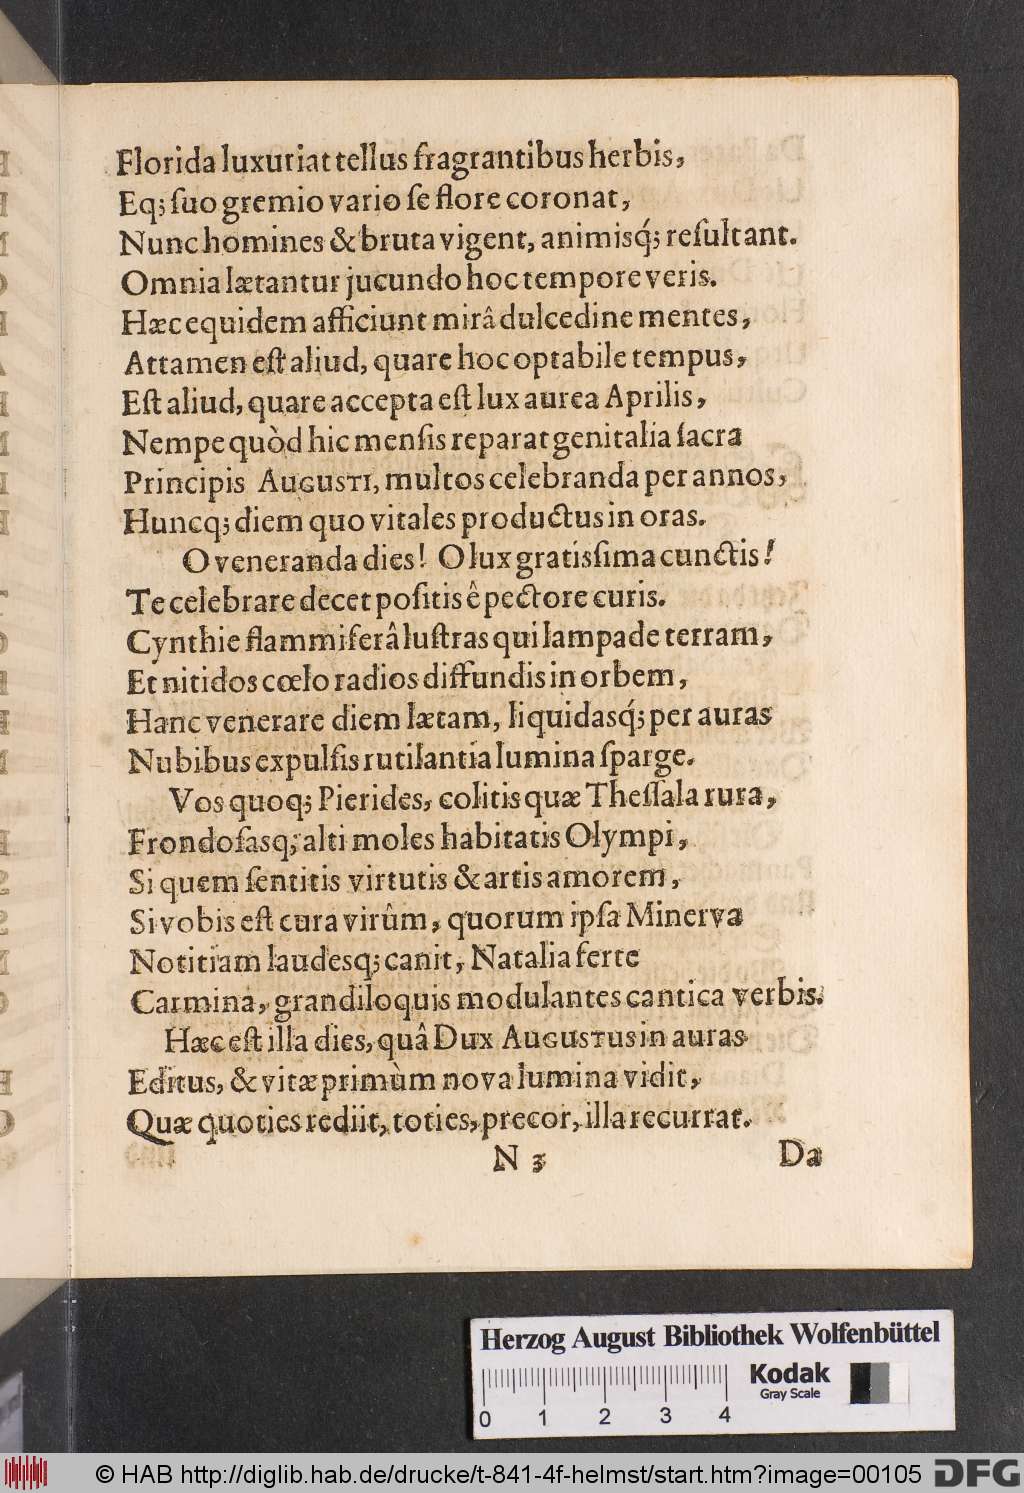 Florida luxuriat tellus fragrantibus herbis,
Eq; ſuo gremio vario ſe flore coronat,
Nunc homines & bruta vigent, animisq́; reſultant.
Omnia lætantur jucundo hoc tempore veris.
Hæc equidem afficiunt mirâ dulcedine mentes,
Attamen eſt aliud, quare hoc optabile tempus,
Eſt aliud, quare accepta eſt lux aurea Aprilis,
Nempe quòd hic menſis reparat genitalia ſacra
Principis AUGUSTI, multos celebranda per annos,
Huncq; diem quo vitales productus in oras.
O veneranda dies! O lux gratisſima cunctis!
Te celebrare decet poſitis ê pectore curis.
Cynthie flammiferâ luſtras qui lampade terram,
Et nitidos cœlo radios diffundis in orbem,
Hanc venerare diem lætam, liquidasq́; per auras
Nubibus expulſis rutilantia lumina ſparge.
Vos quoq; Pierides, colitis quæ Theſſala rura,
Frondoſasq; alti moles habitatis Olympi,
Si quem ſentitis virtutis & artis amorem,
Si vobis eſt cura virûm, quorum ipſa Minerva
Notitiam laudesq; canit, Natalia ferte
Carmina, grandiloquis modulantes cantica verbis.
Hæc eſt illa dies, quâ Dux AUGUSTUS in auras
Editus, & vitæ primùm nova lumina vidit,
Quæ quoties rediit, toties, precor, illa recurrat.
N 3 Da
Herzog August Bibliothek Wolfenbüttel
Kodak
Gray Scale
0 1 2 3 4
© HAB http://diglib.hab.de/drucke/t-841-4f-helmst/start.htm?image=00105 DFG